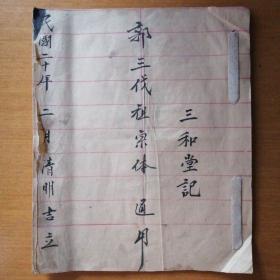 三和堂記
郭三代祖宗体通用
民國二十年二月清明吉立